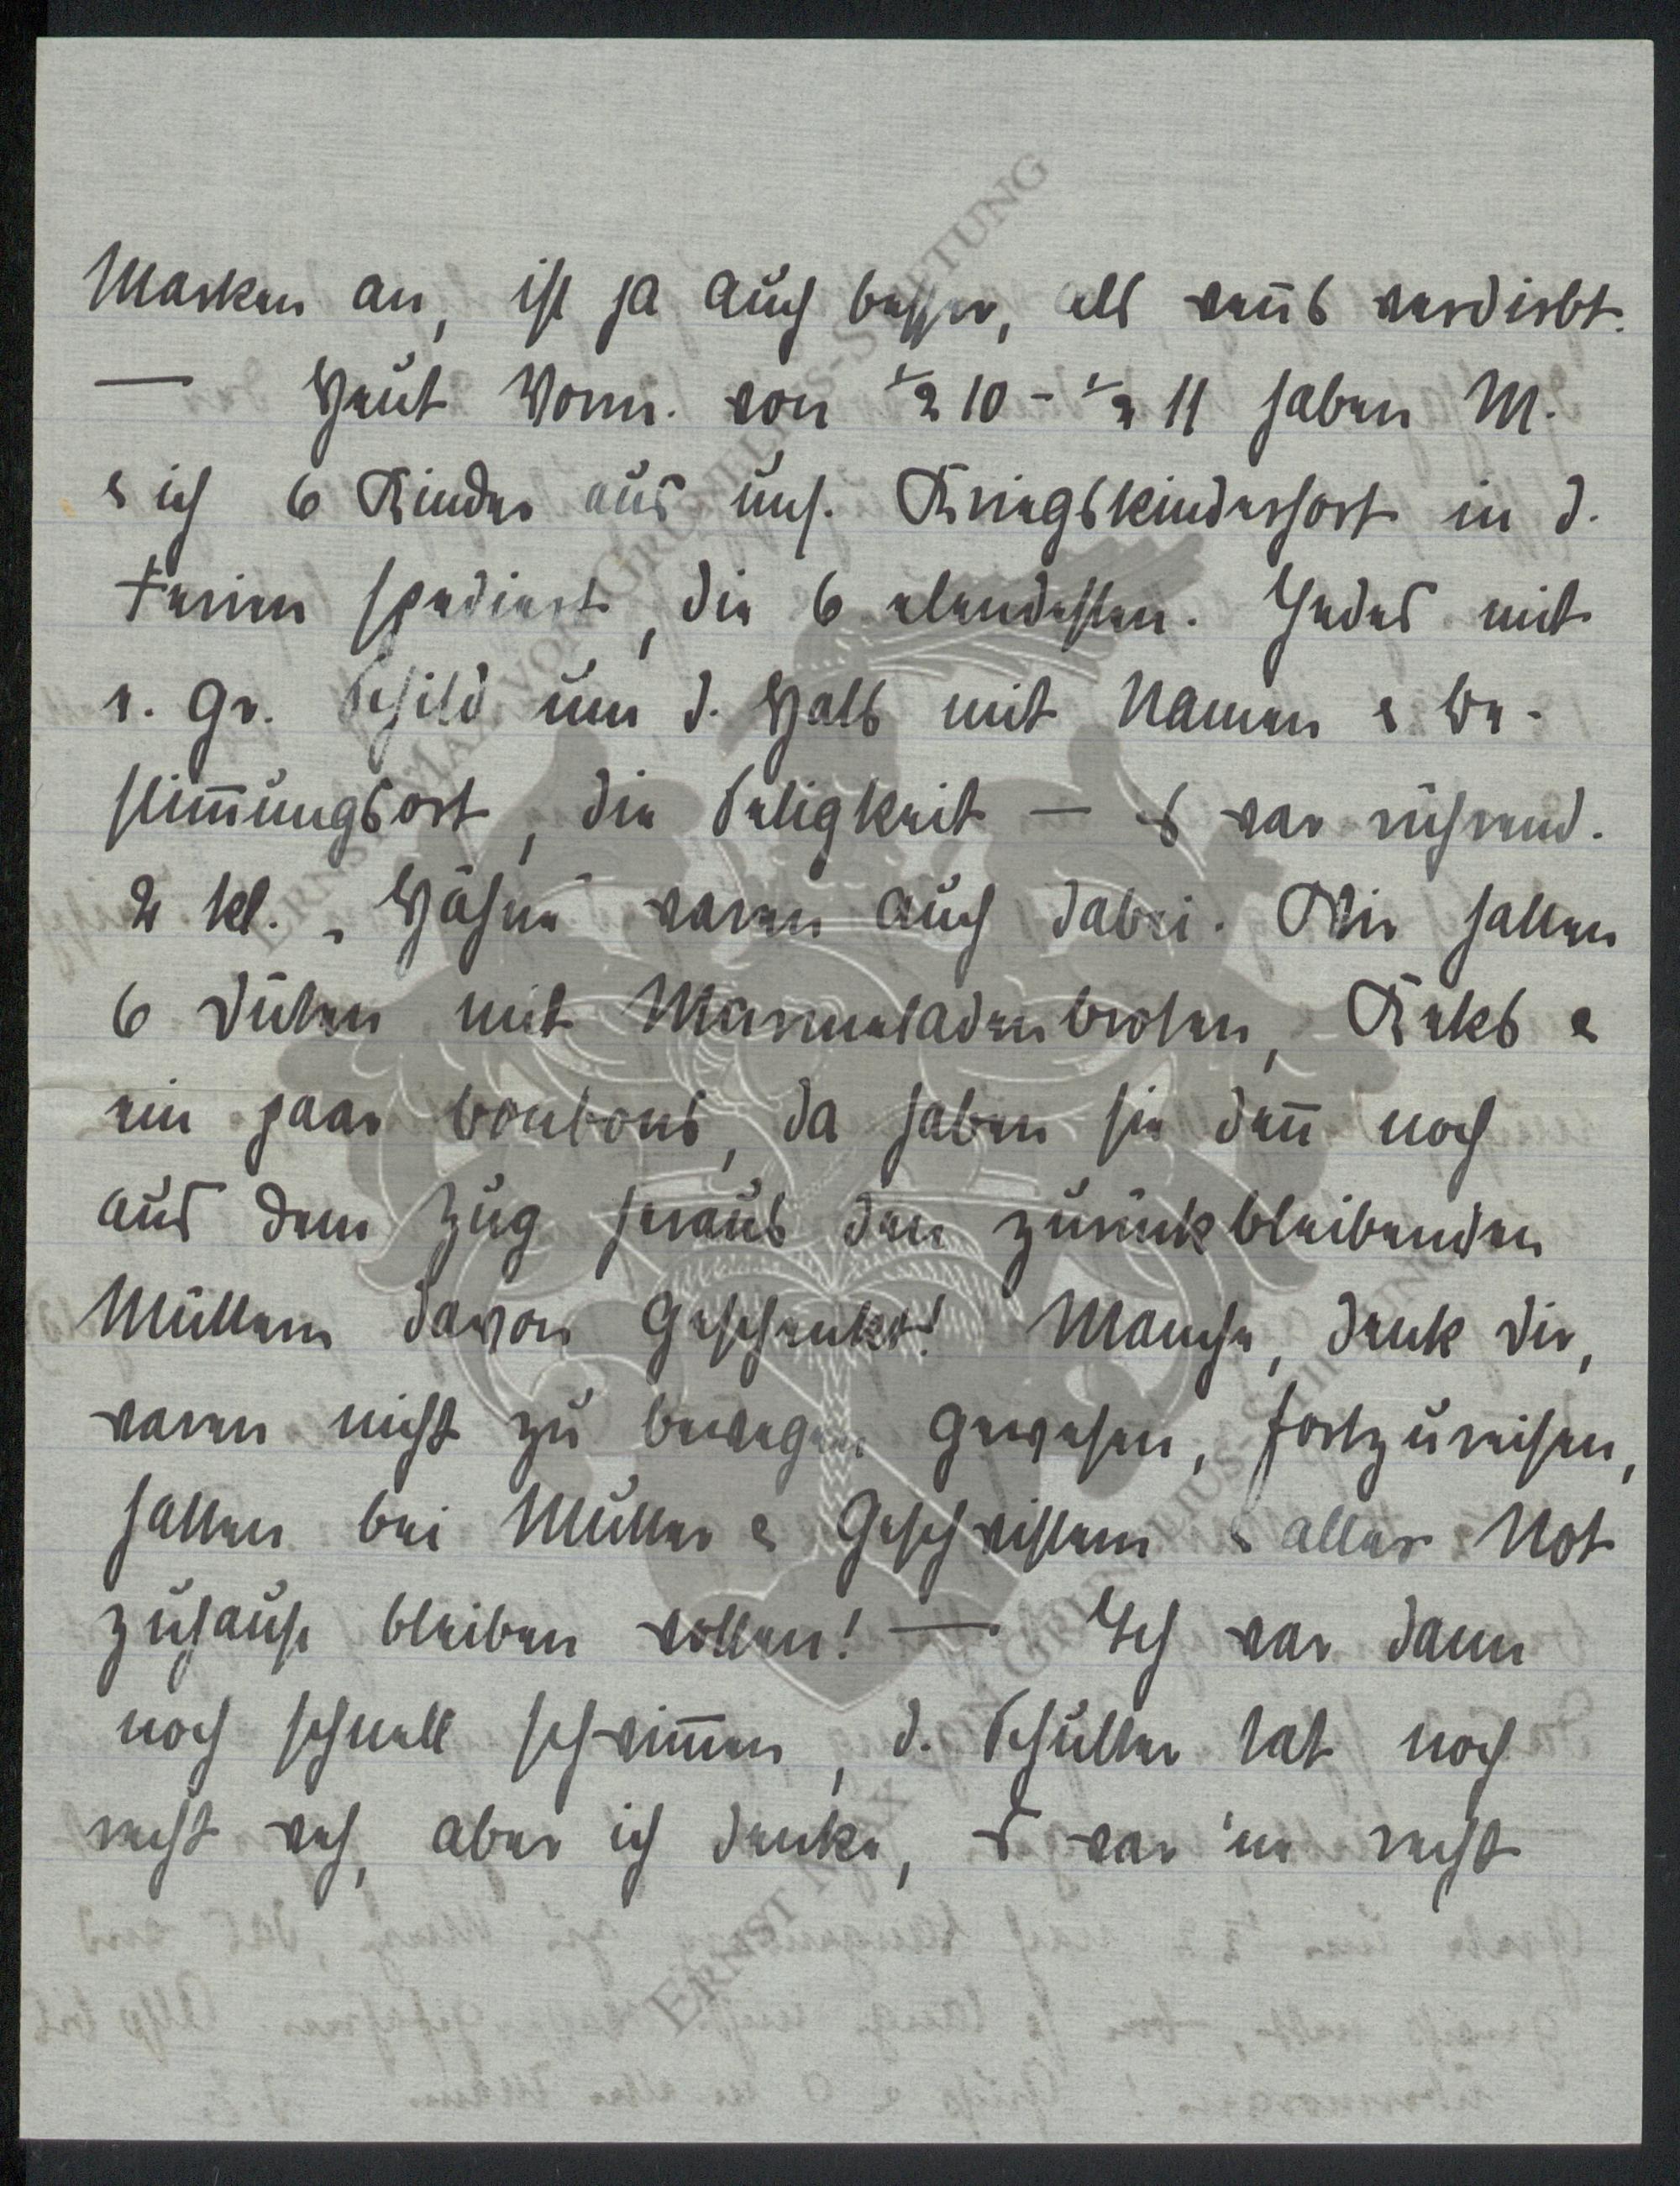 Marken an, ist ja auch besser, als wen̄s verdirbt.
— Heut Vorm. von ½ 10 - ½ 11 haben M.
& ich 6 Kinder aus uns. Kriegskinderhort in d.
Ferien spediert, die 6 elendesten. Jedes mit
e. gr. Schild um d. Hals mit Namen & Be-
stim̄ungsort, die Seligkeit — es war rührend.
2 kl. „Höhne" waren auch dabei. Wir hatten
6 Düten mit Marmeladenbroten, Keks &
ein paar bonbons, da haben sie den̄ noch
aus dem Zug heraus den zurückbleibenden
Müttern davon geschenkt! Manche, denk dir,
waren nicht zu bewegen gewesen, fortzureisen,
hatten bei Mutter & Geschwistern & aller Not
zuhause bleiben wollen! — Ich war dann
noch schnell schwim̄en, d. Schulter tat noch
recht weh, aber ich denke, es war 'ne recht
ERNST MAX VON GRUNELIUS-STIFTUNG
ERNST MAX VON GRUNELIUS-STIFTUNG